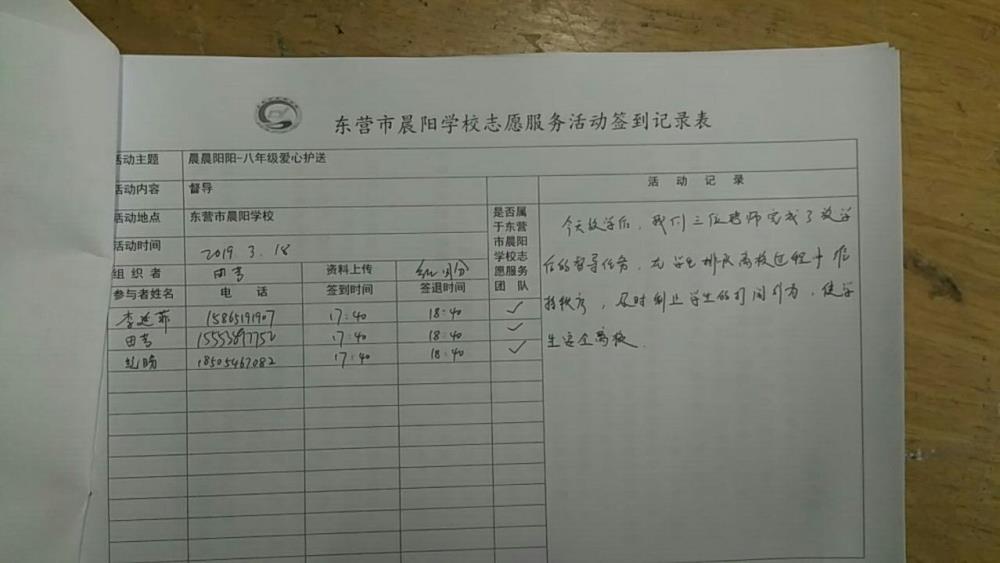 东营市晨阳学校志愿服务活动签到记录表
活动主题 晨晨阳阳-八年级爱心护送
活动内容 督导
活动地点 东营市晨阳学校
活动时间 2019.3.18
组织者 田 资料上传
参与者姓名 电话 签到时间 签退时间
是否属
于东营
市晨阳
学校志
愿服务
团队
李 15865191907 17:40 18:40 ✓
田 15553897752 17:40 18:40 ✓
18505467082 17:40 18:40 ✓
活动记录
今天放学后，我们三位老师完成了放学
后的督导任务，在学生排队离校过程中维
持秩序，及时制止学生的打闹行为，使学
生安全离校.